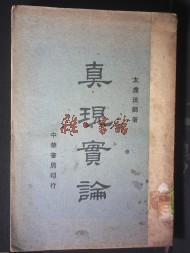 太虛法師著
真現實論
中華書局印行